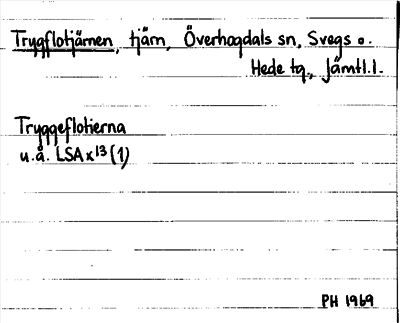 Trygflotjärnen, tjärn, Överhogdals sn, Svegs o.
Hede tg., Jämtl.l.
Tryggeflotierna
u.å. LSA x 13 (1)
PH 1969